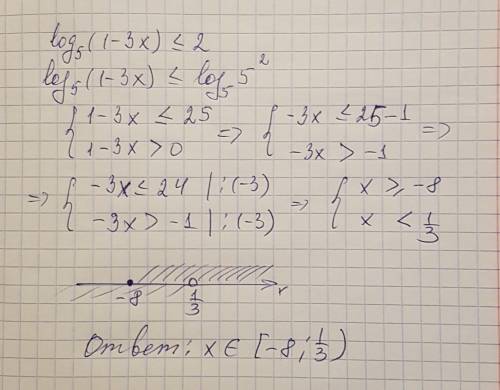 log₅(1-3x) ≤ 2
log₅(1-3x) ≤ log₅5²
{ 1-3x ≤ 25 => { -3x ≤ 25-1 =>
1-3x > 0 -3x > -1
=> { -3x ≤ 24 | : (-3) => { x ≥ -8
-3x > -1 | : (-3) x < 1/3
-8 1/3 x
Ответ: x ∈ [-8; 1/3)